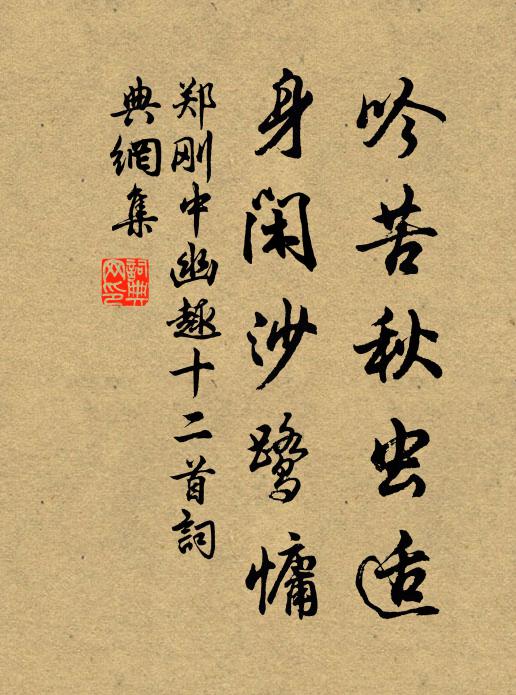 吟苦秋虫适
身闲沙鹭慵
郑刚中幽趣十二首詞
典網集
詞典
网印